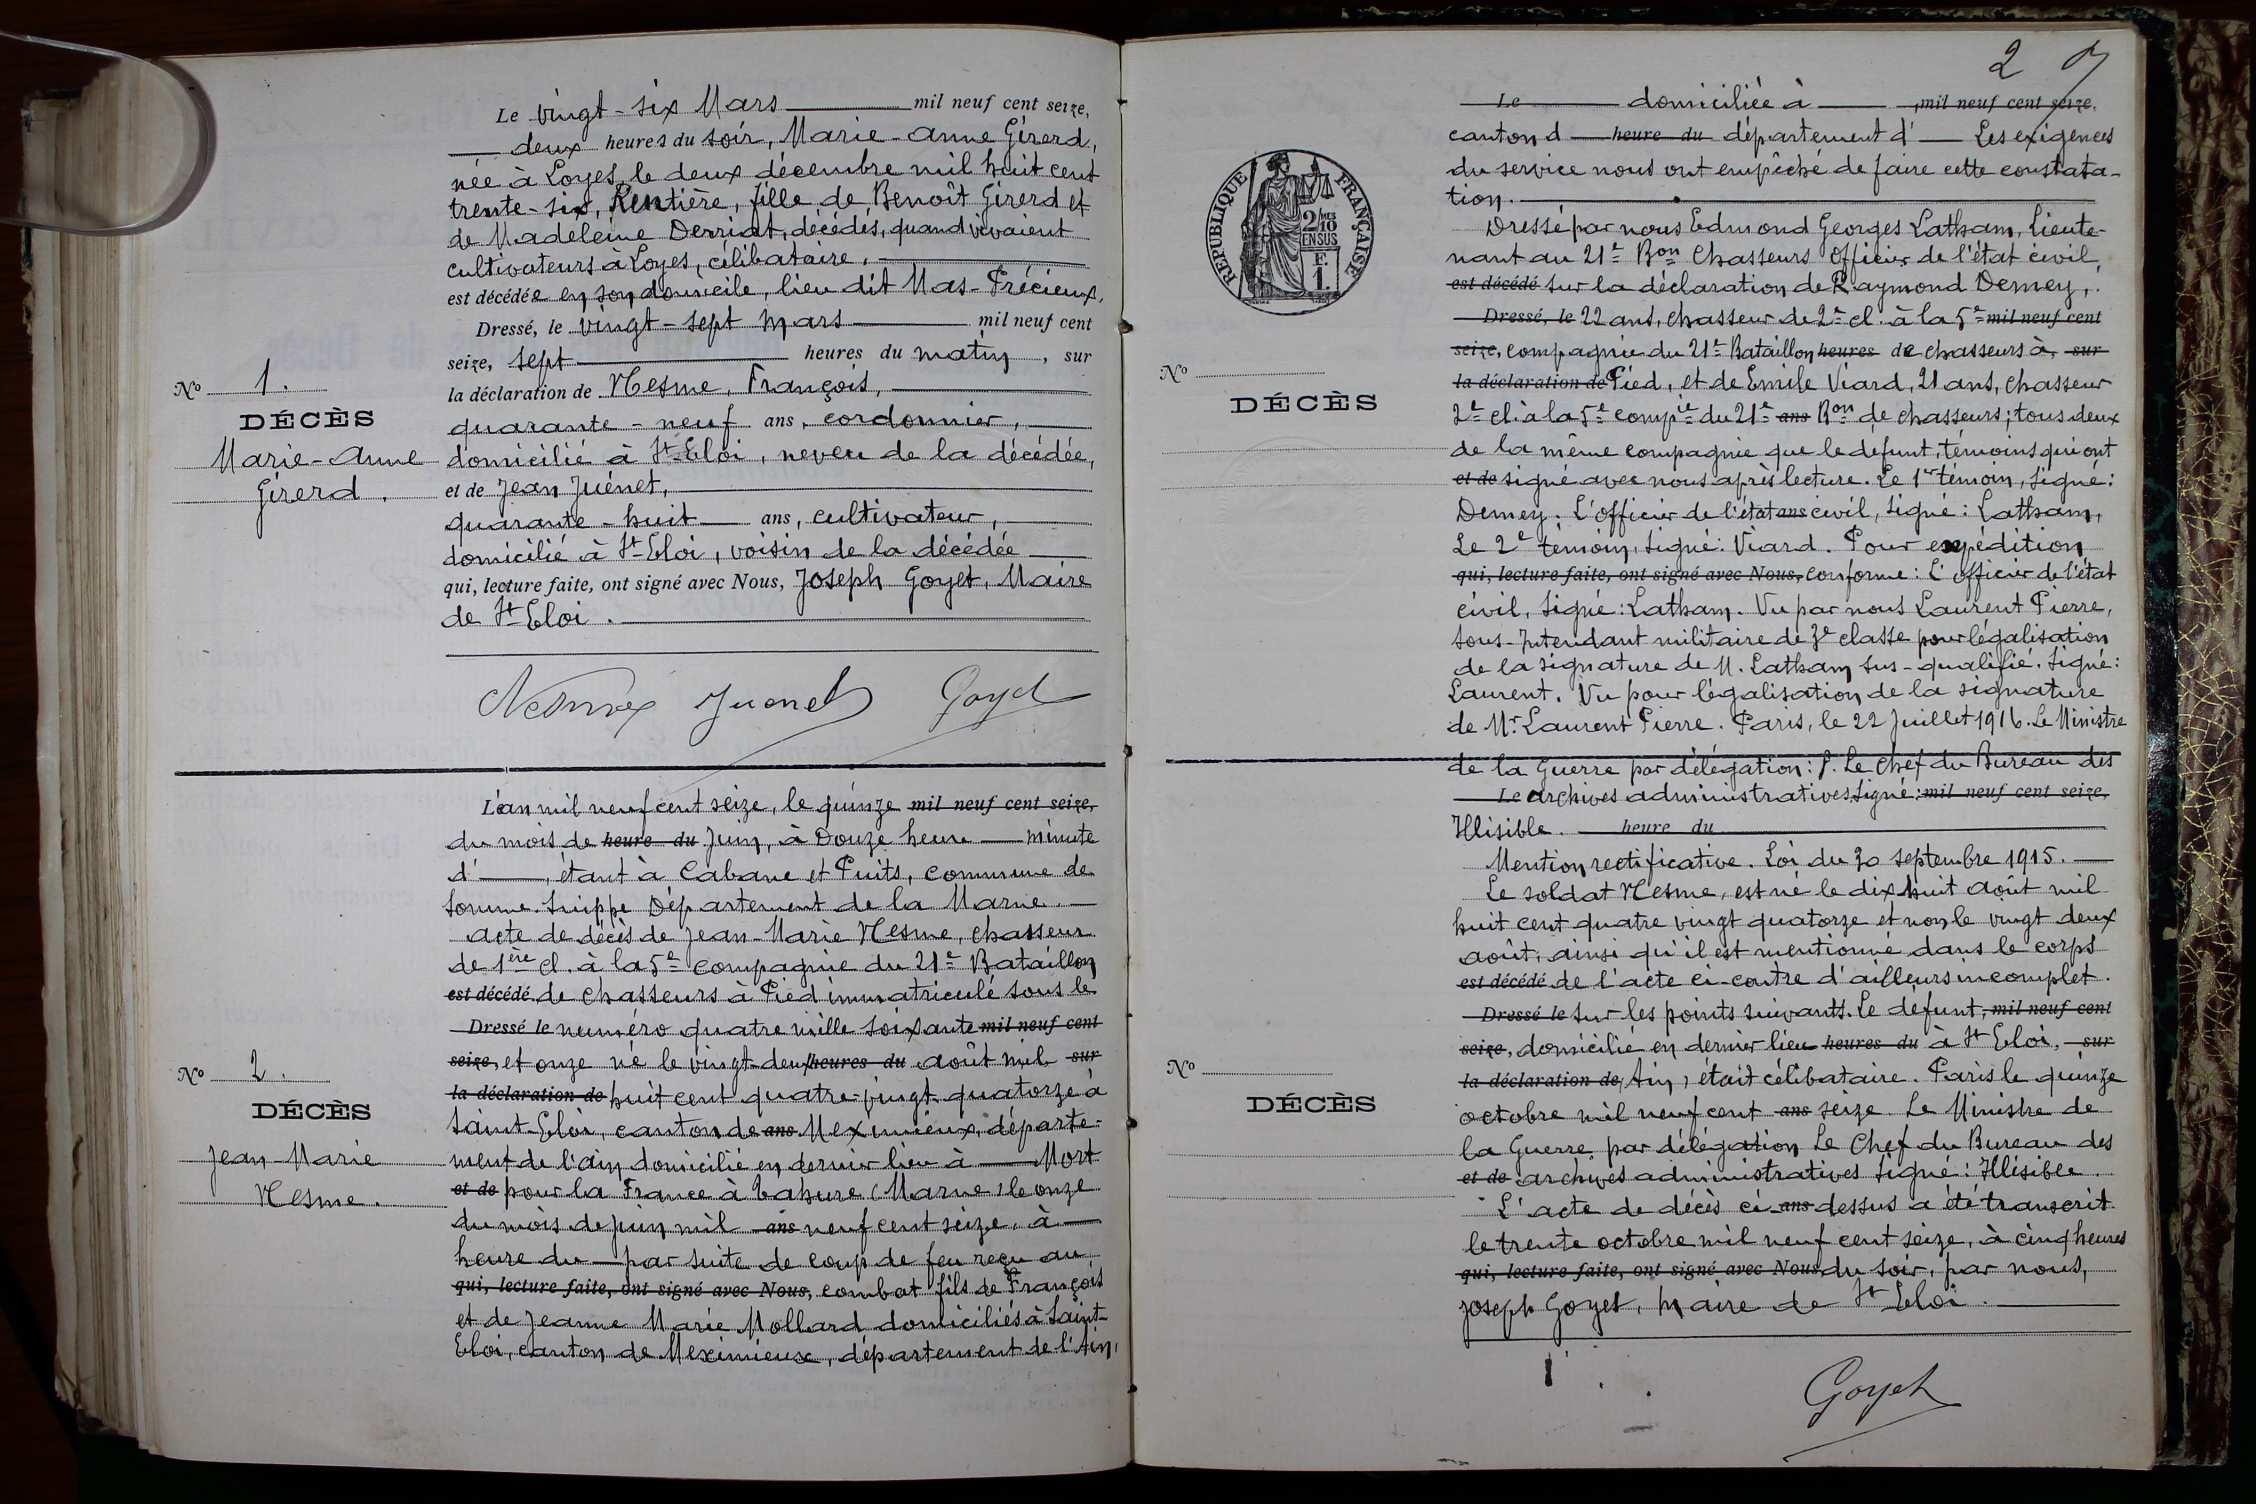 Le vingt-six Mars mil neuf cent seize,
deux heures du soir, Marie-Anne Girerd,
née à Loyes, le deux décembre mil huit cent
trente-six, Rentière, fille de Benoît Girerd et
de Madeleine Derriat, décédés, quand vivaient
cultivateurs à Loyes, célibataire,
est décédée en son domicile, lieu dit Mas-Précieux,
Dressé, le vingt-sept Mars mil neuf cent
seize, sept heures du matin, sur
la déclaration de Nesme, François,
quarante-neuf ans, cordonnier,
domicilié à St-Eloi, neveu de la décédée,
et de Jean Juénet,
quarante-huit ans, cultivateur,
domicilié à St-Eloi, voisin de la décédée
qui, lecture faite, ont signé avec Nous, Joseph Goyet, Maire
de St Eloi.
No 1.
DÉCÈS
Marie-Anne
Girerd.
Nesme Juenet Goyet
L'an mil neuf cent seize, le quinze mil neuf cent seize,
du mois de heure du Juin, à Douze heure minute
d' , étant à Cabane et Puits, commune de
Somme-Suippe Département de la Marne.
acte de décès de Jean-Marie Nesme, chasseur
de 1ère cl. à la 5e compagnie du 21e Bataillon
est décédé de chasseurs à Pied immatriculé sous le
Dressé le numéro quatre mille soixante mil neuf cent
seize, et onze né le vingt-deux heures du août mil sur
la déclaration de huit cent quatre-vingt-quatorze à
Saint-Eloi, canton de ans Meximieux, départe-
ment de l'ain domicilié en dernier lieu à Mort
et de pour la France à Tahure (Marne) le onze
du mois de juin mil ans neuf cent seize, à
heure du par suite de coup de feu reçu au
qui, lecture faite, ont signé avec Nous, combat fils de François
et de Jeanne Marie Mollard domiciliés à Saint-
Eloi, canton de Meximieux, département de l'Ain,
No 2.
DÉCÈS
Jean-Marie
Nesme.
2
Le domiciliée à , mil neuf cent seize,
canton d heure du département d' Les exigences
du service nous ont empêché de faire cette constata-
tion.
Dressé par nous Edmond Georges Latham, Lieute-
nant au 21e Bon Chasseurs Officier de l'état civil,
est décédé sur la déclaration de Raymond Demey,
Dressé, le 22 ans, chasseur de 2e cl. à la 5e mil neuf cent
seize, compagnie du 21e Bataillon heures de chasseurs à, sur
la déclaration de Pied, et de Emile Viard, 21 ans, chasseur
2e cl. à la 5e compie du 21e ans Bon de chasseurs; tous deux
de la même compagnie que le défunt, témoins qui ont
et de signé avec nous après lecture. Le 1er témoin, signé:
Demey. L'officier de l'état ans civil, signé: Latham,
Le 2e témoin, signé: Viard. Pour expédition
qui, lecture faite, ont signé avec Nous, conforme: L'officier de l'état
civil, signé: Latham. Vu par nous Laurent Pierre,
sous-Intendant militaire de 3e classe pour légalisation
de la signature de M. Latham sus-qualifié. Signé:
Laurent. Vu pour légalisation de la signature
de Mr. Laurent Pierre. Paris, le 22 Juillet 1916. Le Ministre
de la Guerre par délégation: P. Le chef du Bureau des
Le archives administratives, signé: mil neuf cent seize,
Illisible. heure du
Mention rectificative. Loi du 30 septembre 1915.
Le soldat Nesme, est né le dix huit août mil
huit cent quatre vingt quatorze et non le vingt deux
août, ainsi qu'il est mentionné dans le corps
est décédé de l'acte ci-contre d'ailleurs incomplet.
Dressé le sur les points suivants. Le défunt, mil neuf cent
seize, domicilié en dernier lieu heures du à St Eloi, sur
la déclaration de, Ain, était célibataire. Paris le quinze
octobre mil neuf cent ans seize Le Ministre de
la Guerre par délégation Le Chef du Bureau des
et de archives administratives signé: Illisible.
L'acte de décès ci ans dessus a été transcrit
le trente octobre mil neuf cent seize, à cinq heures
qui, lecture faite, ont signé avec Nous du soir, par nous,
Joseph Goyet, Maire de St Eloi.
Goyet
RÉPUBLIQUE FRANÇAISE
2/10
EN SUS
F.
1.
No
DÉCÈS
No
DÉCÈS